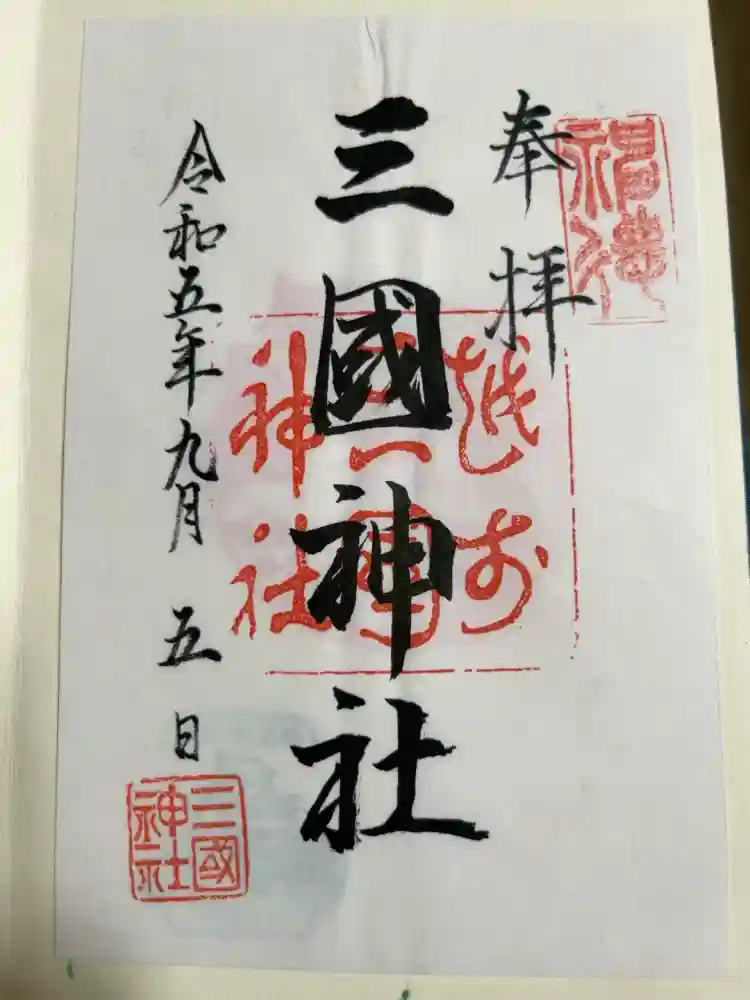 奉拝
三國神社
越前
三國
神社
令和五年九月五日
三國
神社